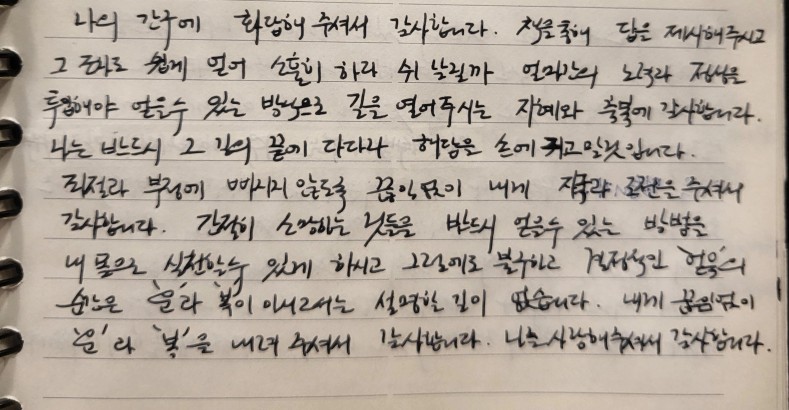 나의 간구에 화답해 주셔서 감사합니다. 책을 통해 답을 제시해 주시고
그 또한 쉽게 얻어 소홀히 하라 쉬 날릴까 얼마간의 노력과 정성을
투입해야 얻을 수 있는 방식으로 길을 열어주시는 지혜와 축복에 감사합니다.
나는 반드시 그 길의 끝에 다다라 해답을 손에 쥐고 말것입니다.
좌절과 부정에 빠지지 않도록 끊임없이 내게 자극과 도전을 주셔서
감사합니다. 간절히 소망하는 것들을 반드시 얻을 수 있는 방법을
내 몸으로 실천할 수 있게 하시고 그럼에도 불구하고 결정적인 '얻음'의
순간은 '운'과 '복'이 아니고서는 설명할 길이 없습니다. 내게 끊임없이
'운'과 '복'을 내려 주셔서 감사합니다. 나를 사랑해주셔서 감사합니다.